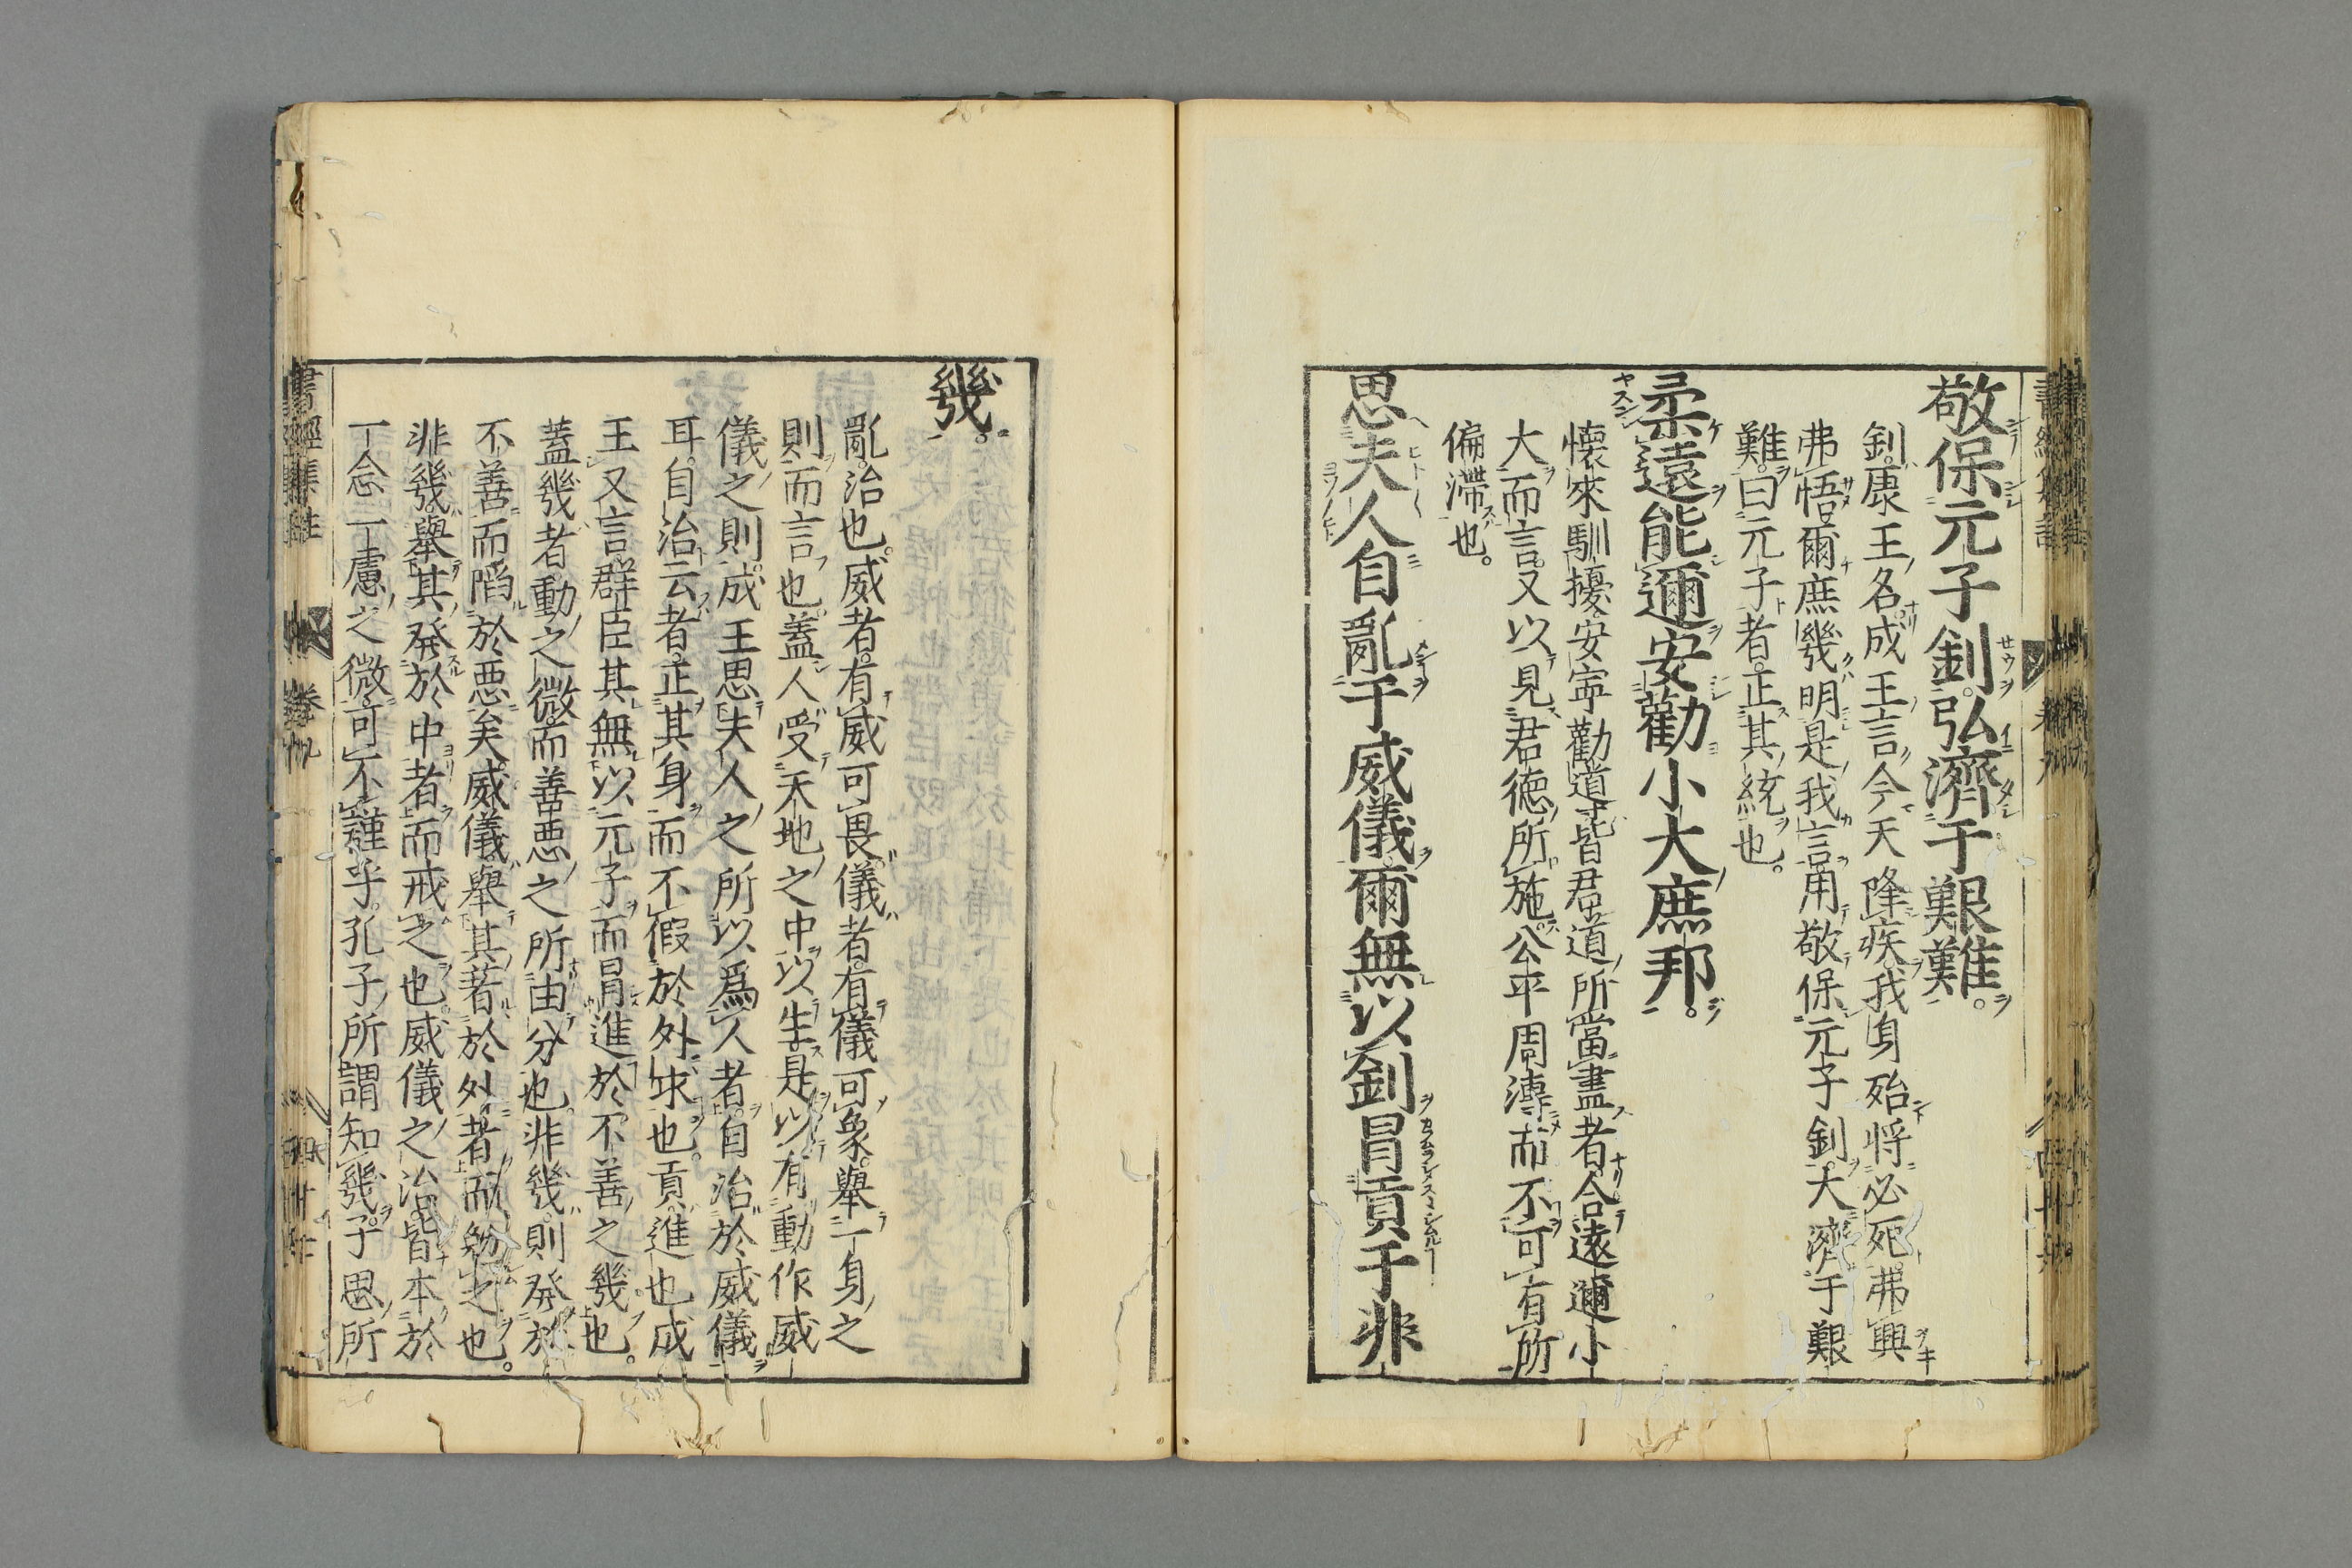 敬保元子釗。弘濟于艱難。
釗。康王名。成王言。今天降疾。我身殆。將必死。弗興
弗悟。爾庶幾明是我言。用敬保元子釗。大濟于艱
難。曰元子者。正其統也。
柔遠能邇。安勸小大庶邦。
懷來馴擾。安寧勸導。皆君道所當盡者。合遠邇小
大而言。又以見君德所施。公平周溥。而不可有所
偏滯也。
思夫人自亂于威儀。爾無以釗冒貢于非
幾。
亂。治也。威者。有威可畏。儀者。有儀可象。舉一身之
則而言也。蓋人受天地之中以生。是以有動作威
儀之則。成王思夫人之所以爲人者。自治於威儀
耳。自治云者。正其身而不假於外求也。貢。進也。成
王又言群臣其無以元子而冒進於不善之幾也。
蓋幾者動之微。而善惡之所由分也。非幾。則發於
不善而陷於惡矣。威儀。舉其著於外者。而勉之也。
非幾。舉其發於中者。而戒之也。威儀之治。皆本於
一念一慮之微。可不謹乎。孔子所謂知幾。子思所
書經集註 卷九